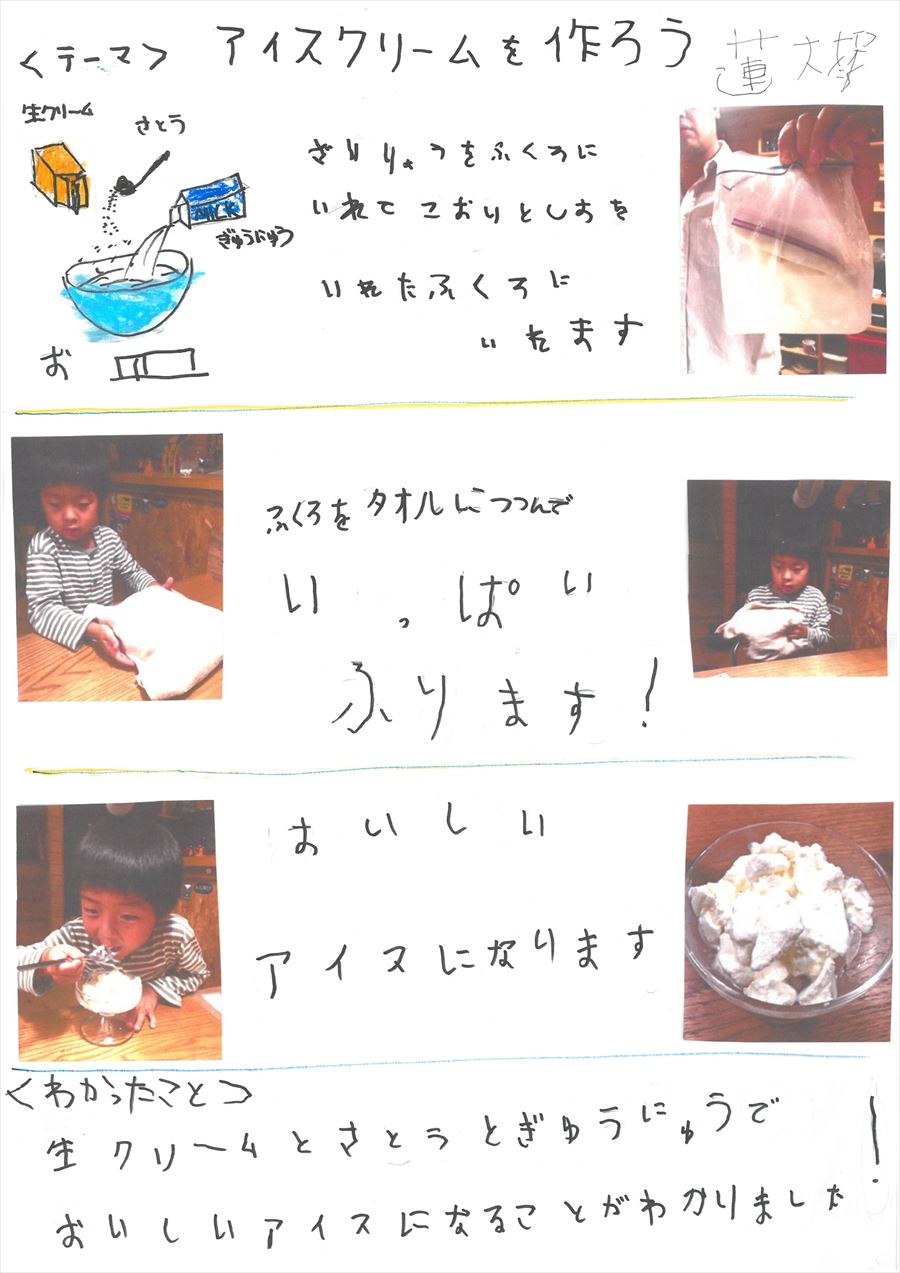 <テーマ> アイスクリームを作ろう
生クリーム
さとう
MILK
ぎゅうにゅう
ざいりょうをふくろに
いれてこおりとしおを
いれたふくろに
いれます
ふくろをタオルにつつんで
いっぱい
ふります!
おいしい
アイスになります
<わかったこと>
生クリームとさとうとぎゅうにゅうで
おいしいアイスになることがわかりました!